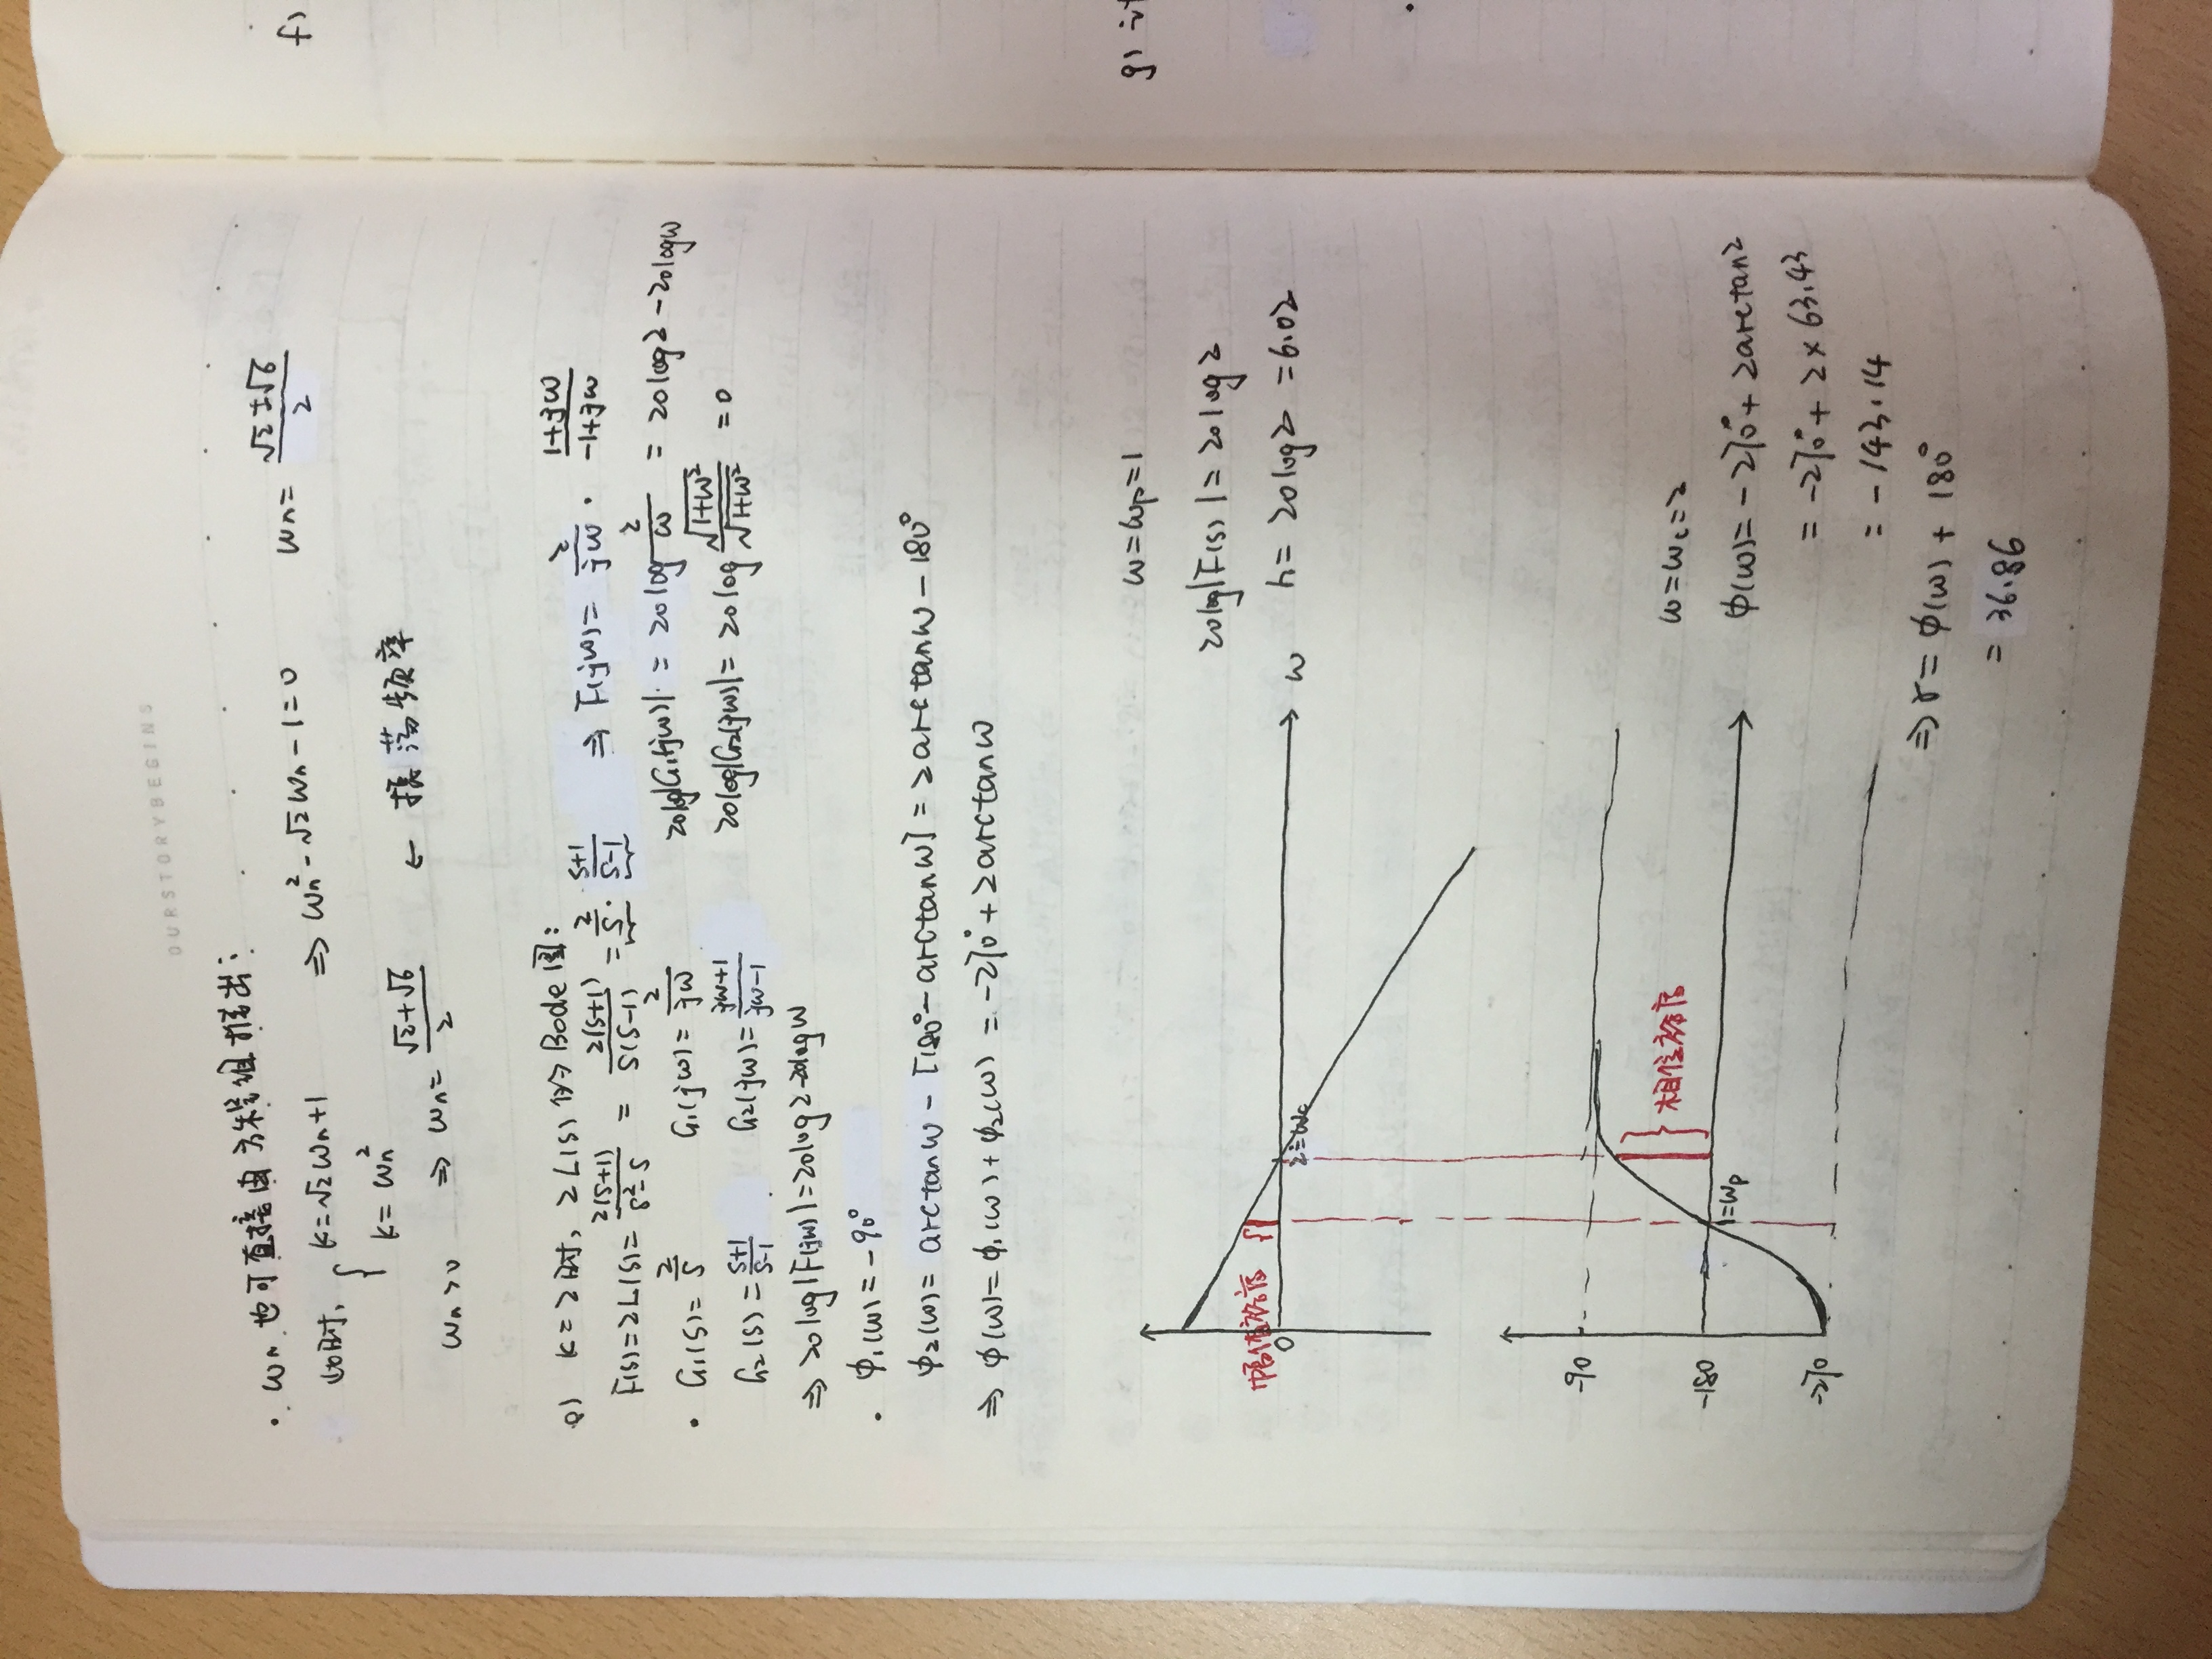 OURSTORYBEGINS
· ωn 也可直接由方程组推出:
此时, { K=√2ωn+1 ⇒ ωn²-√2ωn-1=0 ωn= (√2±√6)/2
K= ωn²
ωn>0 ⇒ ωn= (√2+√6)/2 ← 振荡频率
f)
e) K=2时, 2L(s)的 Bode图:
F(s)=2L(s)= 2(s+1)/(s²-s) = 2(s+1)/(s(s-1)) = 2/s · (s+1)/(s-1) ⇒ F(jω)= 2/(jω) · (1+jω)/(-1+jω)
· G1(s)= 2/s G1(jω)= 2/(jω) 20log|G1(jω)| = 20log 2/ω = 20log2-20logω
G2(s)= (s+1)/(s-1) G2(jω)= (jω+1)/(jω-1) 20log|G2(jω)|= 20log √(1+ω²)/√(1+ω²) =0
⇒ 20log|F(jω)|=20log2-20logω
· φ1(ω)= -90°
φ2(ω)= arctanω - [180°-arctanω] = 2arctanω - 180°
⇒ φ(ω)= φ1(ω)+φ2(ω) = -270°+2arctanω
ω=ωp=1
g)
20log|F(s)|= 20log2
幅值裕度
0
2=ωc
ω
h= 20log2 =6.02
-90
相位裕度
ω=ωc=2
-180
1=ωp
φ(ω)= -270°+ 2arctan2
= -270°+ 2×63.43
-270
= -143.14
⇒ γ= φ(ω) + 180°
= 36.86